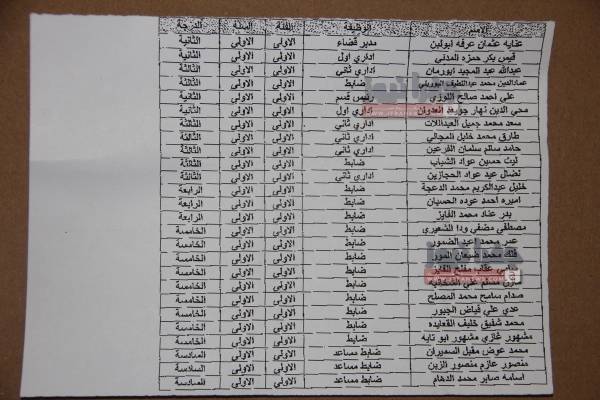 الاسم الوظيفة الفئة السنة الدرجة
عنايه عثمان عرفه ابولبن مدير قضاء الاولى الاولى الثانية
قيس بكر حمزه المدني اداري اول الاولى الاولى الثانية
عبدالله عبد المجيد ابورمان اداري ثاني الاولى الاولى الثالثة
عمادالدين محمد عبداللطيف ضابط الاولى الاولى الثالثة
علي احمد صالح اللوزي رئيس قسم الاولى الاولى الثانية
محي الدين نهار جويعد العدوان اداري اول الاولى الاولى الثانية
سعد محمد جميل العبداللات اداري ثاني الاولى الاولى الثالثة
طارق محمد خليل المجالي اداري ثاني الاولى الاولى الثالثة
حامد سالم سلمان القرعين اداري ثاني الاولى الاولى الثالثة
ليث حسين عواد الشياب ضابط الاولى الاولى الثالثة
نضال عيد عواد الحجازين اداري ثاني الاولى الاولى الثالثة
خليل عبدالكريم محمد الدعجة ضابط الاولى الاولى الرابعة
اميره احمد عوده الحسبان ضابط الاولى الاولى الرابعة
بدر عناد محمد الفايز ضابط الاولى الاولى الرابعة
مصطفى مضفي ودا الشعيري ضابط الاولى الاولى الخامسة
عمر محمد اعيد الضمور ضابط الاولى الاولى الخامسة
فلك محمد ضبعان المور ضابط الاولى الاولى الخامسة
عقاب مفلح الفايز ضابط الاولى الاولى الخامسة
مسلم علي ضابط الاولى الاولى الخامسة
صدام سامح محمد المصلح ضابط الاولى الاولى الخامسة
عدي علي فياض الجبور ضابط الاولى الاولى الخامسة
محمد شفيق خليف القعايده ضابط الاولى الاولى الخامسة
مشهور غازي مشهور ابو تايه ضابط الاولى الاولى الخامسة
محمد عوض مقبل السميران ضابط مساعد الاولى الاولى السادسة
منصور عازم منصور الزبن ضابط مساعد الاولى الاولى السادسة
اسامه صابر محمد الدهام ضابط مساعد الاولى الاولى السادسة